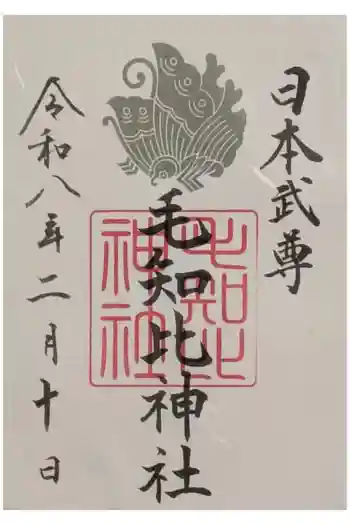 日本武尊
毛知比神社
毛知比神社
令和八年二月十日